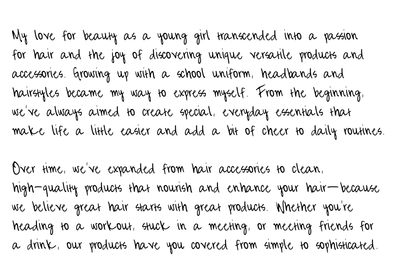 My love for beauty as a young girl transcended into a passion
for hair and the joy of discovering unique versatile products and
accessories. Growing up with a school uniform, headbands and
hairstyles became my way to express myself. From the beginning,
we've always aimed to create special, everyday essentials that
make life a little easier and add a bit of cheer to daily routines.
Over time, we've expanded from hair accessories to clean,
high-quality products that nourish and enhance your hair—because
we believe great hair starts with great products. Whether you're
heading to a workout, stuck in a meeting, or meeting friends for
a drink, our products have you covered from simple to sophisticated.